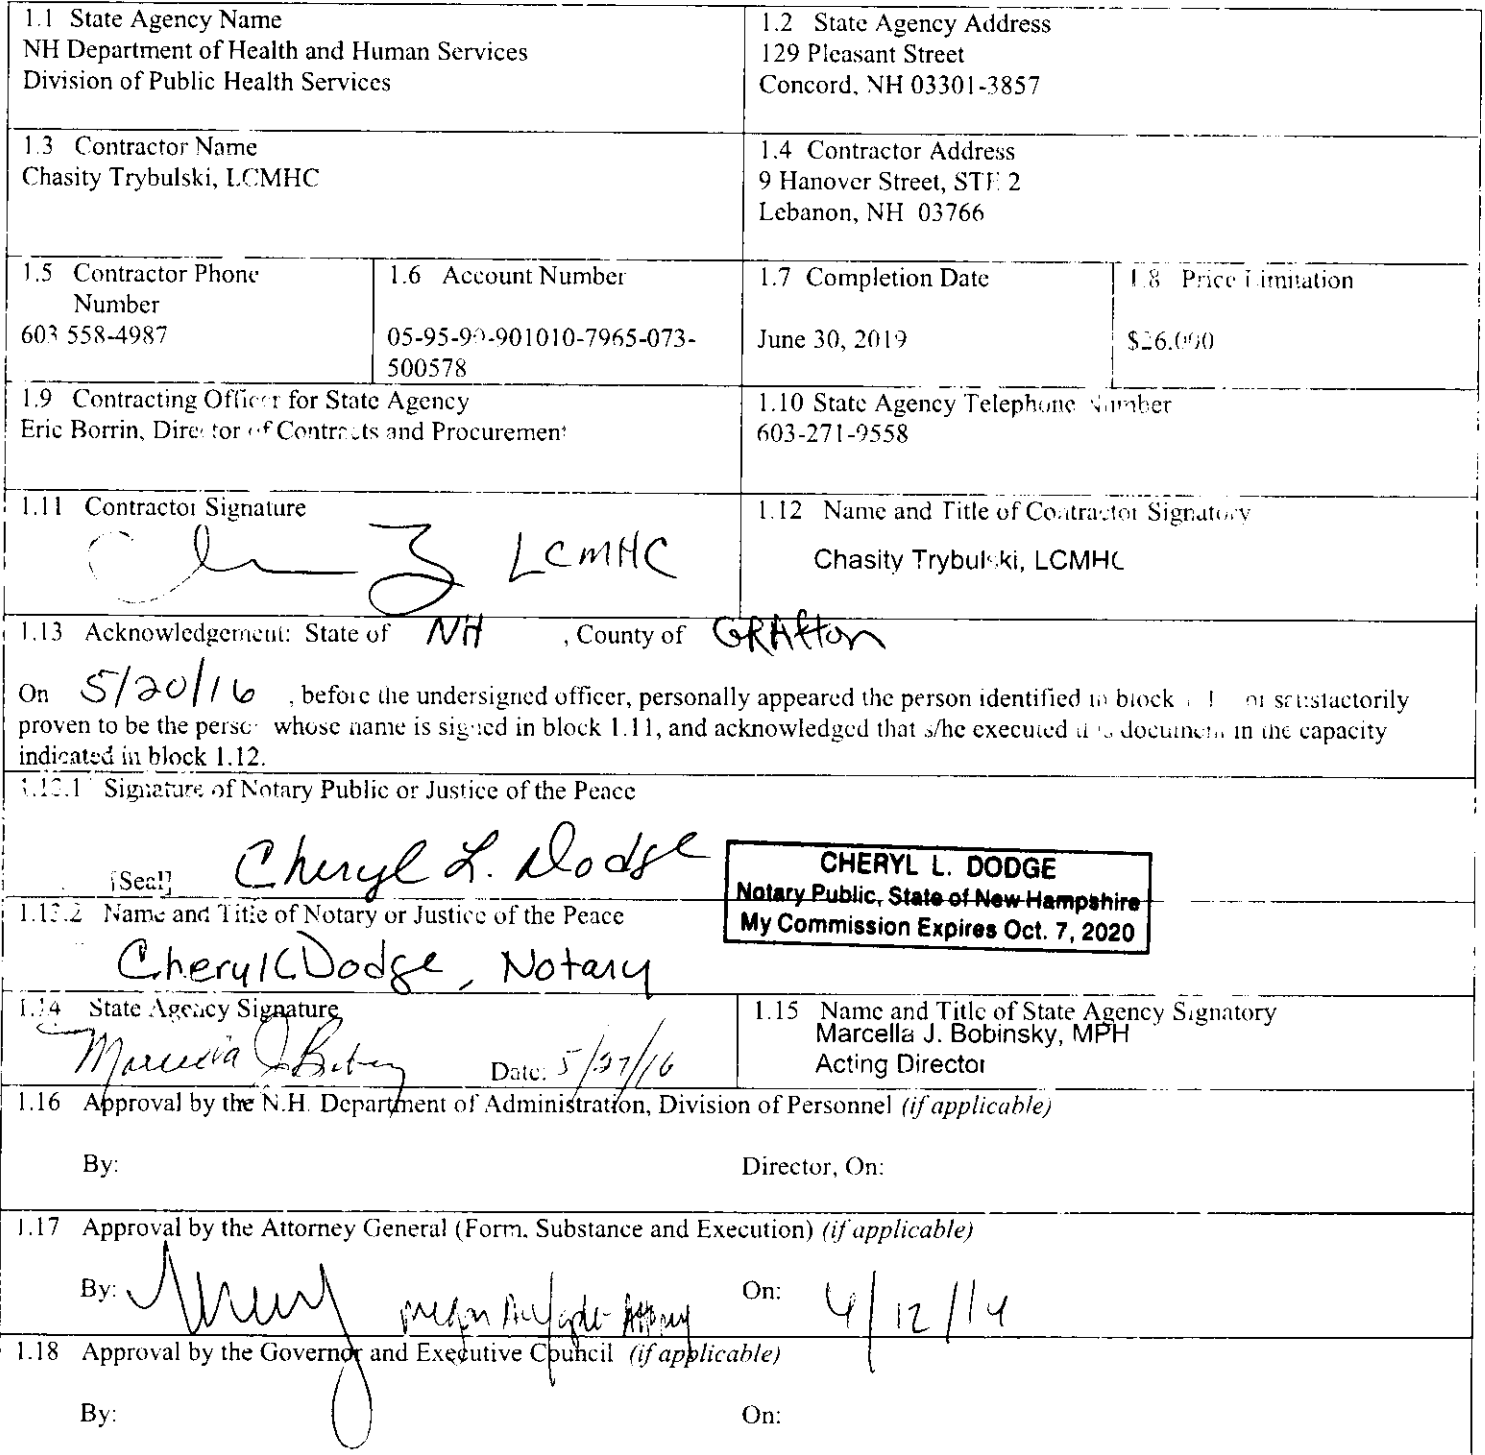 1.1 State Agency Name
NH Department of Health and Human Services
Division of Public Health Services
1.2 State Agency Address
129 Pleasant Street
Concord, NH 03301-3857
1.3 Contractor Name
Chasity Trybulski, LCMHC
1.4 Contractor Address
9 Hanover Street, STE 2
Lebanon, NH 03766
1.5 Contractor Phone
Number
603 558-4987
1.6 Account Number
05-95-90-901010-7965-073-
500578
1.7 Completion Date
June 30, 2019
1.8 Price Limitation
1.9 Contracting Officer for State Agency
Eric Borrin, Director of Contracts and Procurement
1.10 State Agency Telephone Number
603-271-9558
1.11 Contractor Signature
LCMHC
1.12 Name and Title of Contractor Signatory
Chasity Trybulski, LCMHC
1.13 Acknowledgement: State of NH , County of GRAfton
On 5/20/16 , before the undersigned officer, personally appeared the person identified in block or satisfactorily
proven to be the person whose name is signed in block 1.11, and acknowledged that s/he executed this document in the capacity
indicated in block 1.12.
1.13.1 Signature of Notary Public or Justice of the Peace
[Seal] Cheryl L. Dodge
CHERYL L. DODGE
Notary Public, State of New Hampshire
My Commission Expires Oct. 7, 2020
1.13.2 Name and Title of Notary or Justice of the Peace
Cheryl L Dodge, Notary
1.14 State Agency Signature
Date: 5/27/16
1.15 Name and Title of State Agency Signatory
Marcella J. Bobinsky, MPH
Acting Director
1.16 Approval by the N.H. Department of Administration, Division of Personnel (if applicable)
By:
Director, On:
1.17 Approval by the Attorney General (Form, Substance and Execution) (if applicable)
By:
On:
1.18 Approval by the Governor and Executive Council (if applicable)
By:
On: